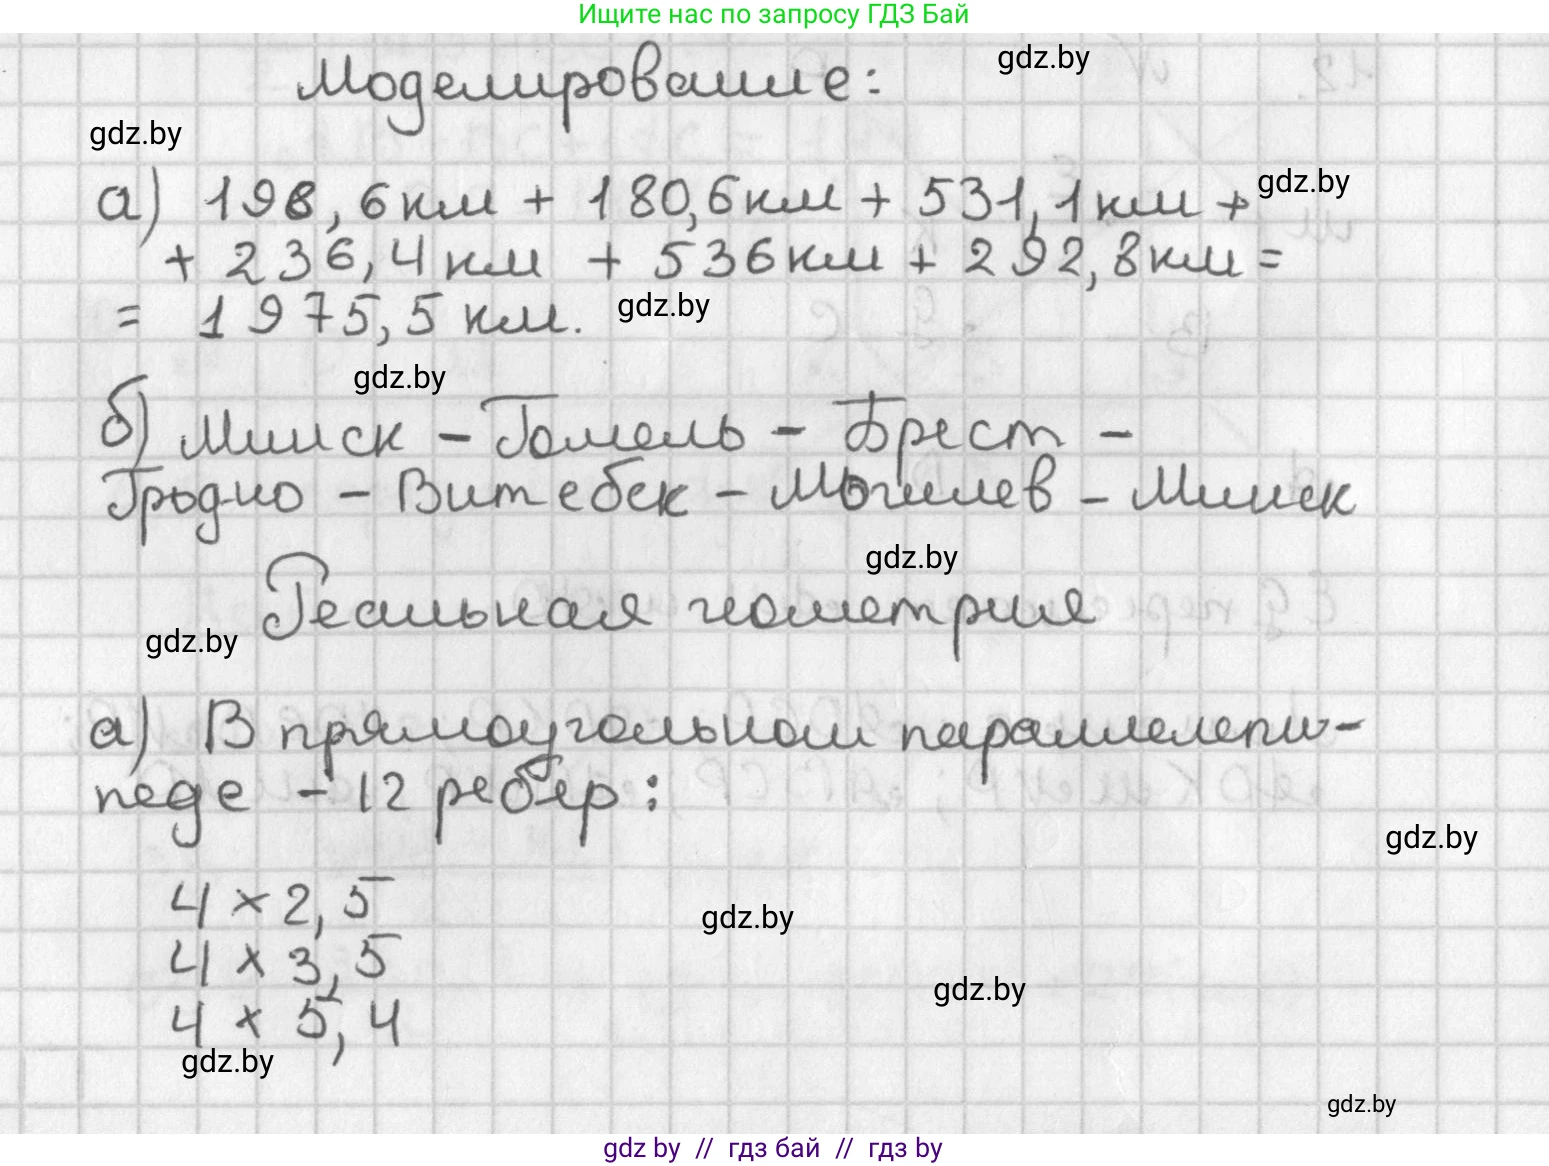 Ищите нас по запросу ГДЗ Бай
Моделирование:
gdz.by
gdz.by
а) 198,6 км + 180,6 км + 531,1 км +
gdz.by
+ 236,4 км + 536 км + 292,8 км =
= 1975,5 км.
gdz.by
gdz.by
б) Минск - Гомель - Брест -
Гродно - Витебск - Могилев - Минск
gdz.by
Реальная геометрия
gdz.by
а) В прямоугольном параллелепи-
педе - 12 ребер:
gdz.by
4 × 2,5
gdz.by
4 × 3,5
gdz.by
4 × 5,4
gdz.by
gdz.by
gdz by // гдз бай // гдз by